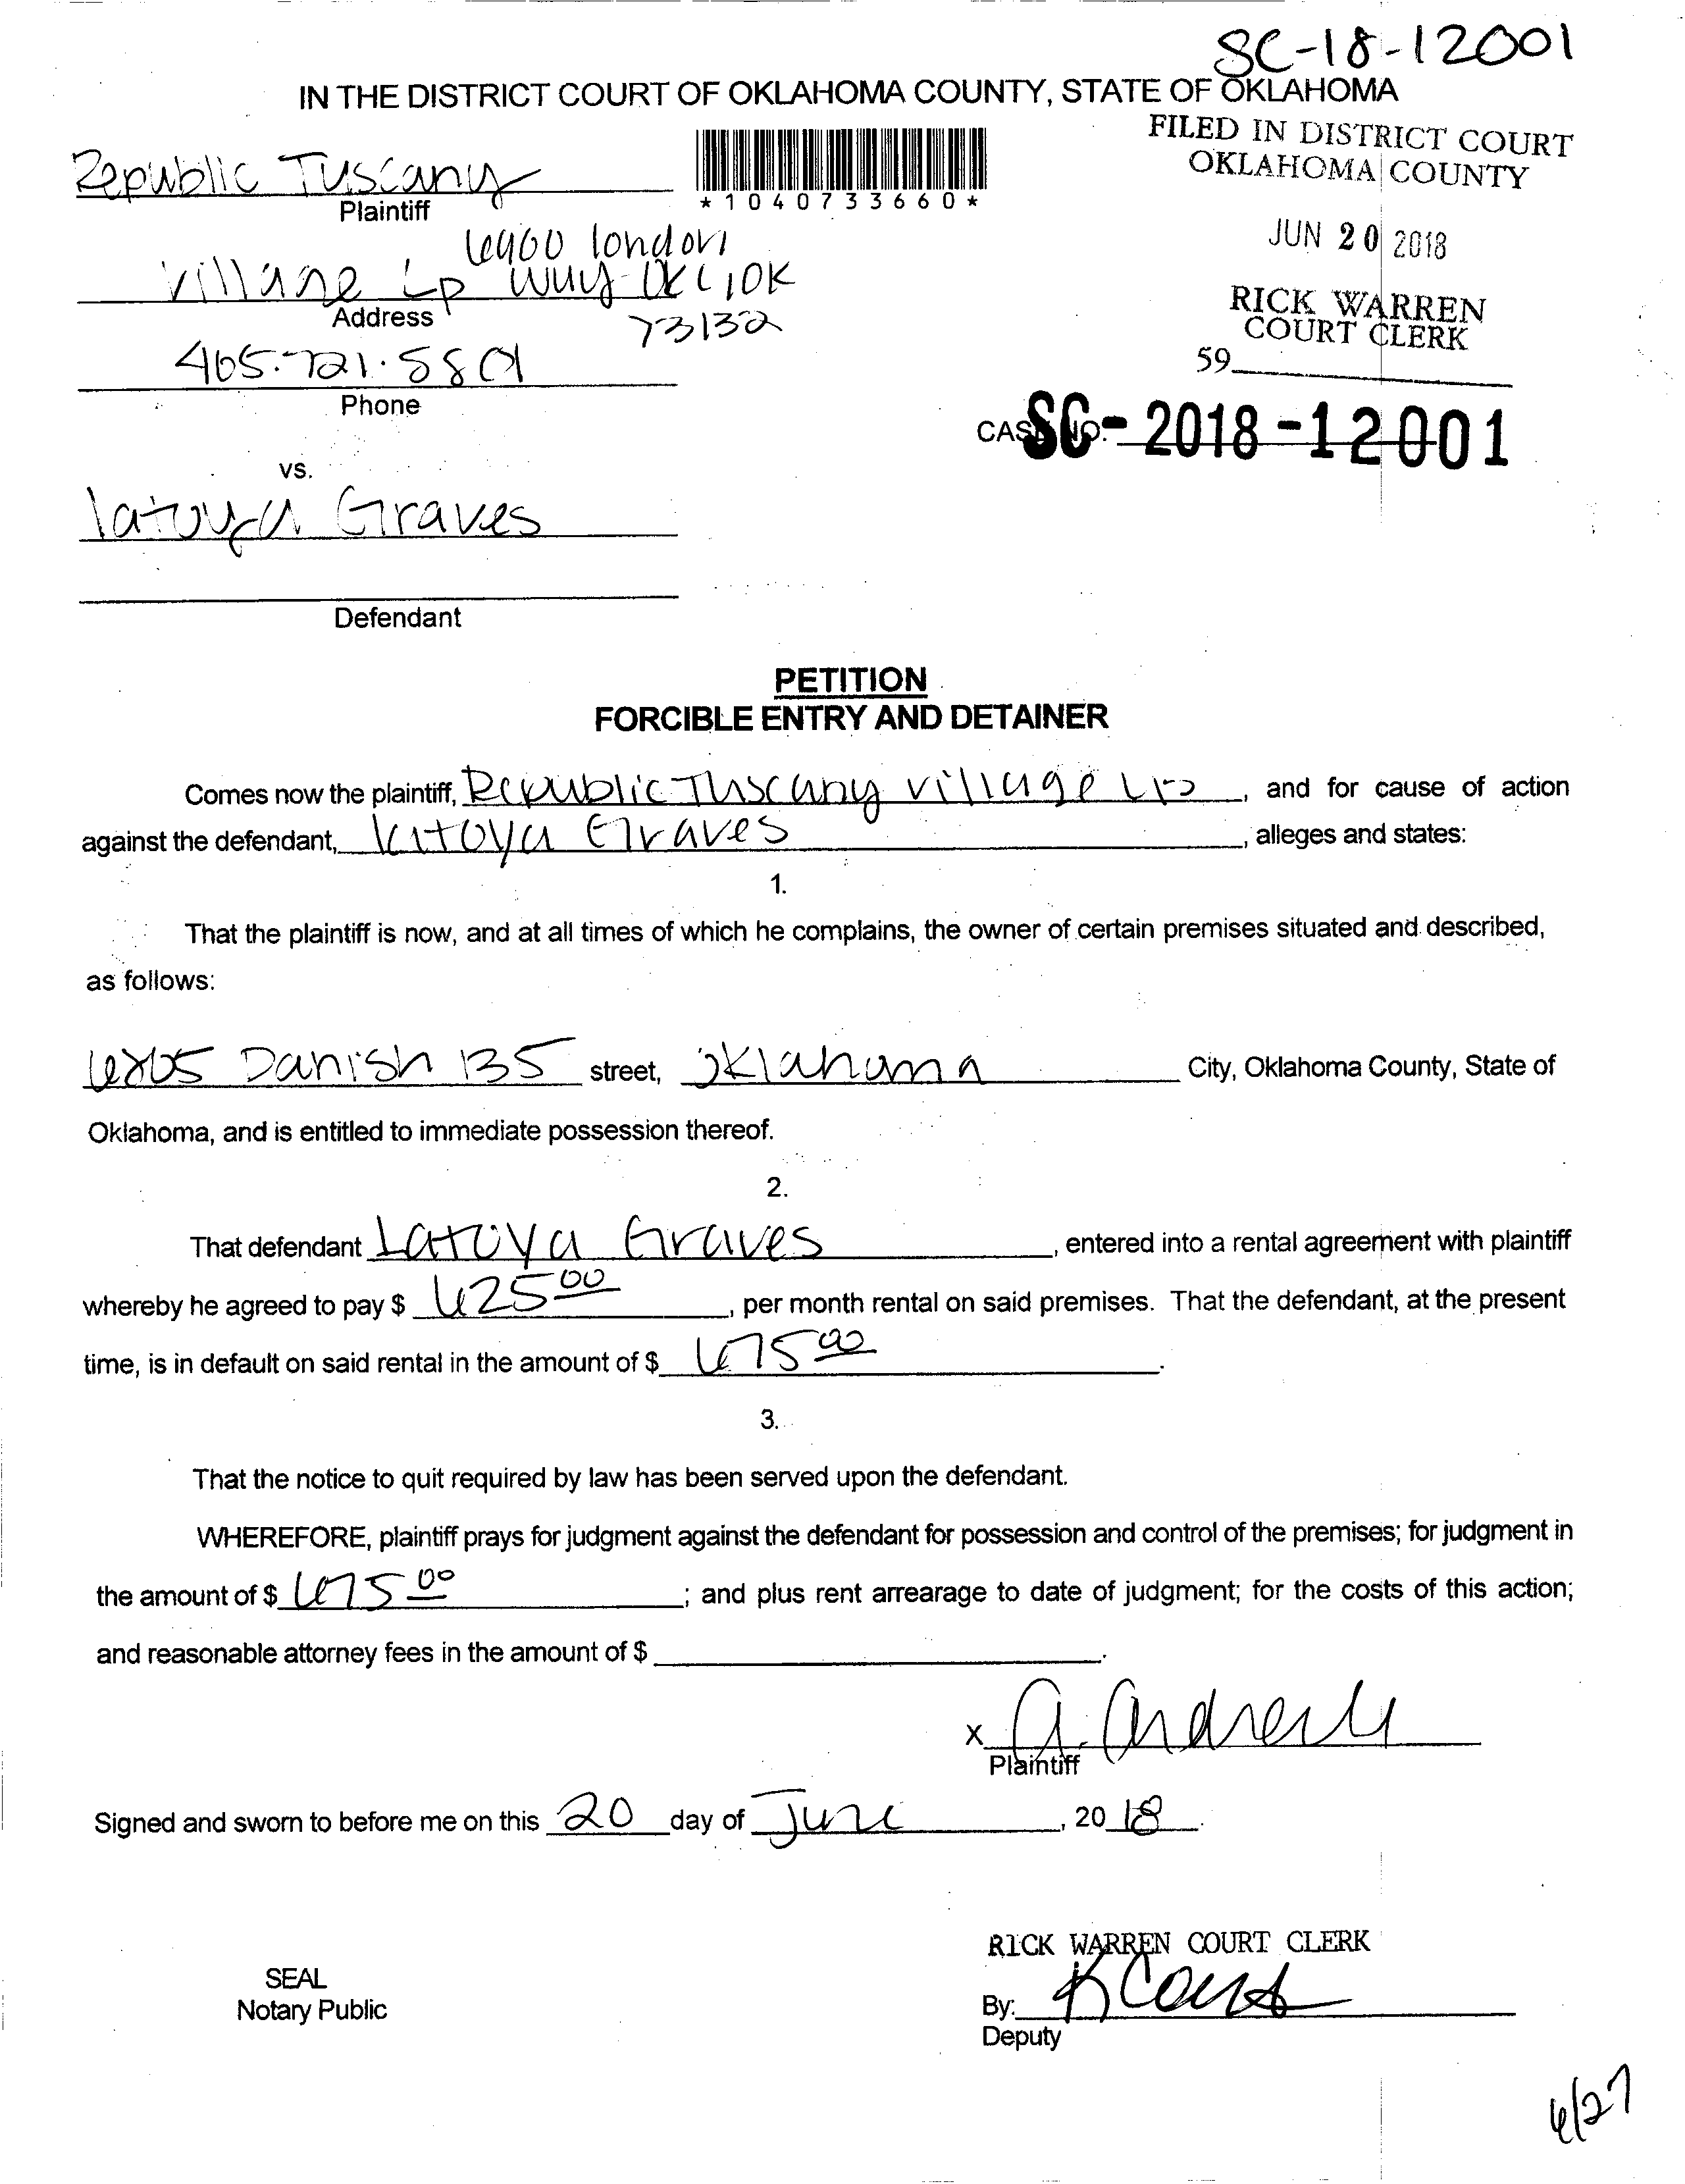 SC-18-12001
IN THE DISTRICT COURT OF OKLAHOMA COUNTY, STATE OF OKLAHOMA
FILED IN DISTRICT COURT
OKLAHOMA COUNTY
Republic Tuscany
*1040733660*
Plaintiff
JUN 20 2018
6900 london
Village Lp Way OKC, OK
73132
Address
RICK WARREN
COURT CLERK
59
405.721.5801
Phone
CASE NO. SC-2018-12001
vs.
latoya Graves
Defendant
PETITION
FORCIBLE ENTRY AND DETAINER
Comes now the plaintiff, Republic Tuscany village LP, and for cause of action
against the defendant, latoya Graves, alleges and states:
1.
That the plaintiff is now, and at all times of which he complains, the owner of certain premises situated and described,
as follows:
6805 Danish 135 street, oklahoma City, Oklahoma County, State of
Oklahoma, and is entitled to immediate possession thereof.
2.
That defendant Latoya Graves, entered into a rental agreement with plaintiff
whereby he agreed to pay $ 625 00, per month rental on said premises. That the defendant, at the present
time, is in default on said rental in the amount of $ 675 00.
3.
That the notice to quit required by law has been served upon the defendant.
WHEREFORE, plaintiff prays for judgment against the defendant for possession and control of the premises; for judgment in
the amount of $ 675 00; and plus rent arrearage to date of judgment; for the costs of this action;
and reasonable attorney fees in the amount of $
x
Plaintiff
Signed and sworn to before me on this 20 day of June, 2018.
RICK WARREN COURT CLERK
SEAL
Notary Public
By:
Deputy
6/27